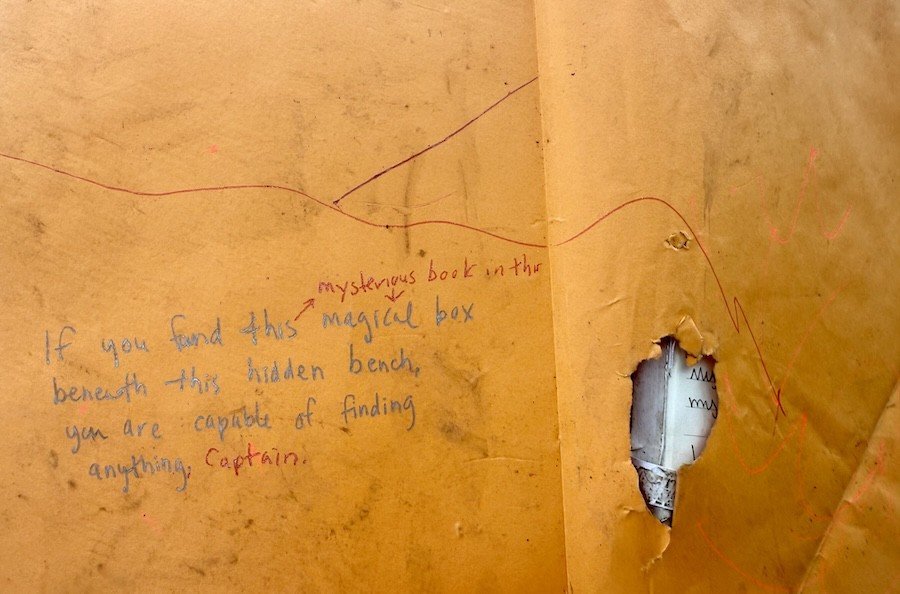 mysterious book in this
If you fund this magical box
beneath this hidden bench,
you are capable of finding
anything. Captain.
my
my